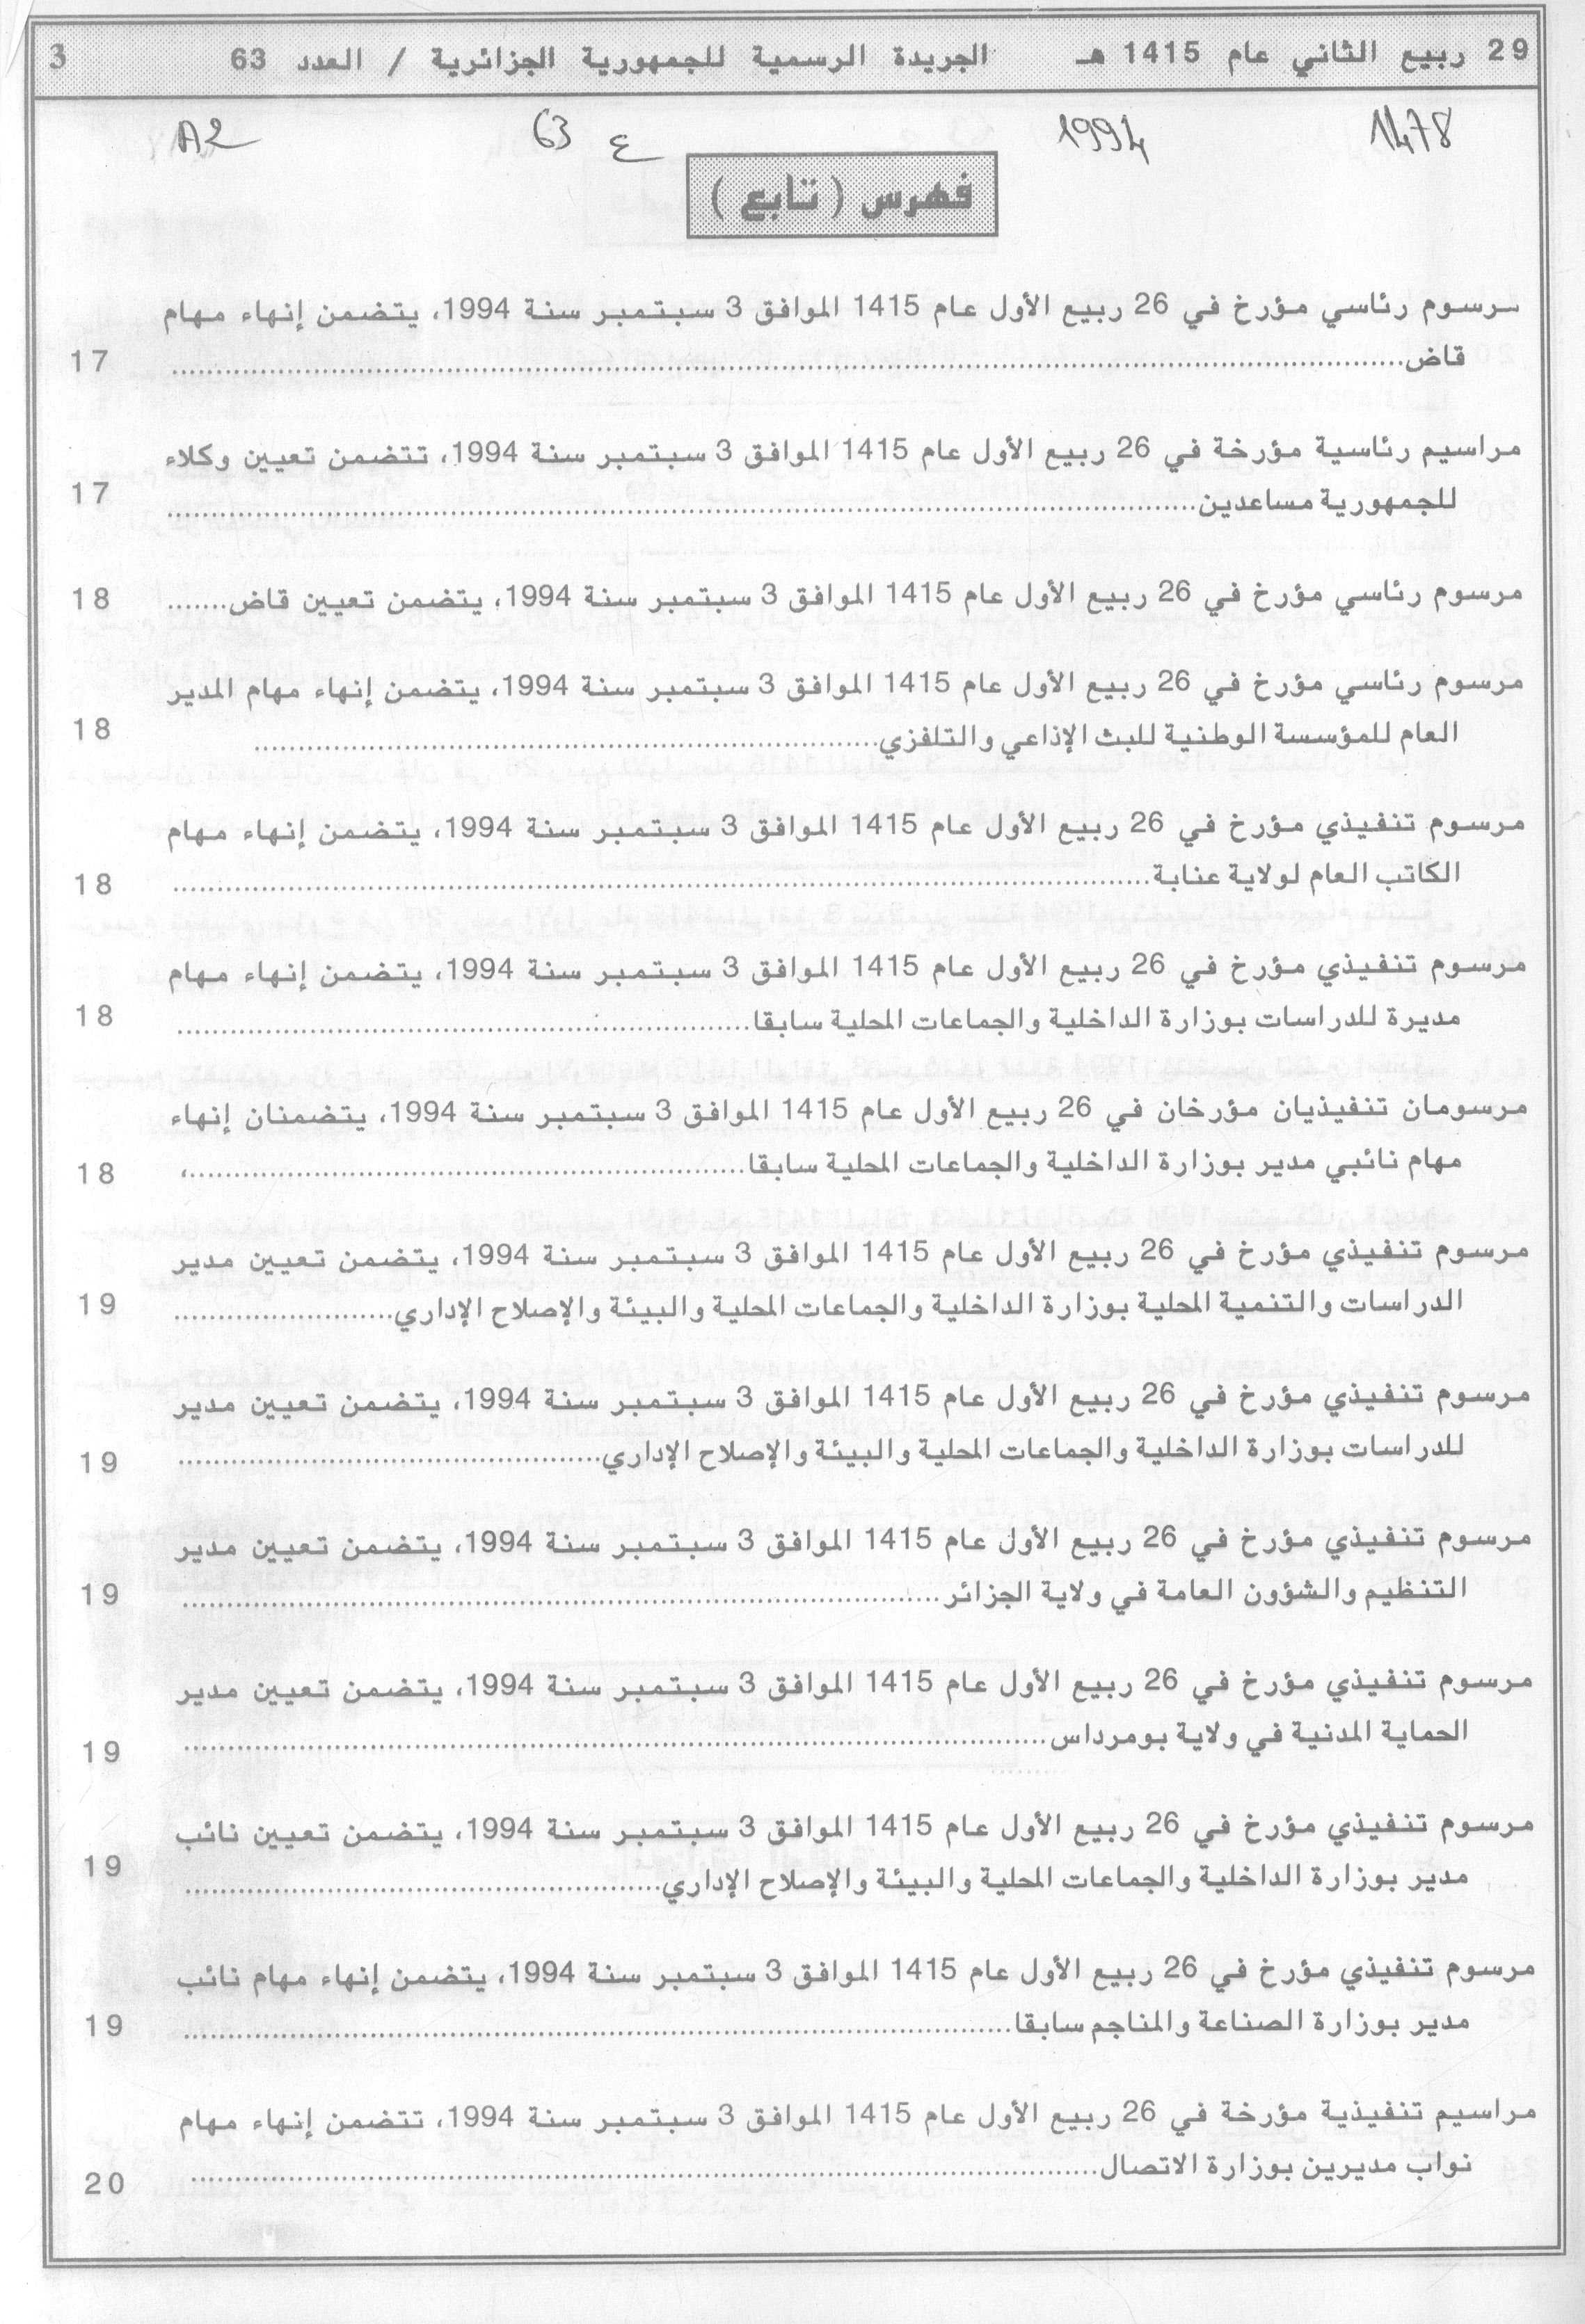 29 ربيع الثاني عام 1415 هـ الجريدة الرسمية للجمهورية الجزائرية / العدد 63 3
1478 1994 ع 63 A2
فهرس ( تابع )
مرسوم رئاسي مؤرخ في 26 ربيع الأول عام 1415 الموافق 3 سبتمبر سنة 1994، يتضمن إنهاء مهام
قاض 17
مراسيم رئاسية مؤرخة في 26 ربيع الأول عام 1415 الموافق 3 سبتمبر سنة 1994، تتضمن تعيين وكلاء
للجمهورية مساعدين 17
مرسوم رئاسي مؤرخ في 26 ربيع الأول عام 1415 الموافق 3 سبتمبر سنة 1994، يتضمن تعيين قاض 18
مرسوم رئاسي مؤرخ في 26 ربيع الأول عام 1415 الموافق 3 سبتمبر سنة 1994، يتضمن إنهاء مهام المدير
العام للمؤسسة الوطنية للبث الإذاعي والتلفزي 18
مرسوم تنفيذي مؤرخ في 26 ربيع الأول عام 1415 الموافق 3 سبتمبر سنة 1994، يتضمن إنهاء مهام
الكاتب العام لولاية عنابة 18
مرسوم تنفيذي مؤرخ في 26 ربيع الأول عام 1415 الموافق 3 سبتمبر سنة 1994، يتضمن إنهاء مهام
مديرة للدراسات بوزارة الداخلية والجماعات المحلية سابقا 18
مرسومان تنفيذيان مؤرخان في 26 ربيع الأول عام 1415 الموافق 3 سبتمبر سنة 1994، يتضمنان إنهاء
مهام نائبي مدير بوزارة الداخلية والجماعات المحلية سابقا 18
مرسوم تنفيذي مؤرخ في 26 ربيع الأول عام 1415 الموافق 3 سبتمبر سنة 1994، يتضمن تعيين مدير
الدراسات والتنمية المحلية بوزارة الداخلية والجماعات المحلية والبيئة والإصلاح الإداري 19
مرسوم تنفيذي مؤرخ في 26 ربيع الأول عام 1415 الموافق 3 سبتمبر سنة 1994، يتضمن تعيين مدير
للدراسات بوزارة الداخلية والجماعات المحلية والبيئة والإصلاح الإداري 19
مرسوم تنفيذي مؤرخ في 26 ربيع الأول عام 1415 الموافق 3 سبتمبر سنة 1994، يتضمن تعيين مدير
التنظيم والشؤون العامة في ولاية الجزائر 19
مرسوم تنفيذي مؤرخ في 26 ربيع الأول عام 1415 الموافق 3 سبتمبر سنة 1994، يتضمن تعيين مدير
الحماية المدنية في ولاية بومرداس 19
مرسوم تنفيذي مؤرخ في 26 ربيع الأول عام 1415 الموافق 3 سبتمبر سنة 1994، يتضمن تعيين نائب
مدير بوزارة الداخلية والجماعات المحلية والبيئة والإصلاح الإداري 19
مرسوم تنفيذي مؤرخ في 26 ربيع الأول عام 1415 الموافق 3 سبتمبر سنة 1994، يتضمن إنهاء مهام نائب
مدير بوزارة الصناعة والمناجم سابقا 19
مراسيم تنفيذية مؤرخة في 26 ربيع الأول عام 1415 الموافق 3 سبتمبر سنة 1994، تتضمن إنهاء مهام
نواب مديرين بوزارة الاتصال 20